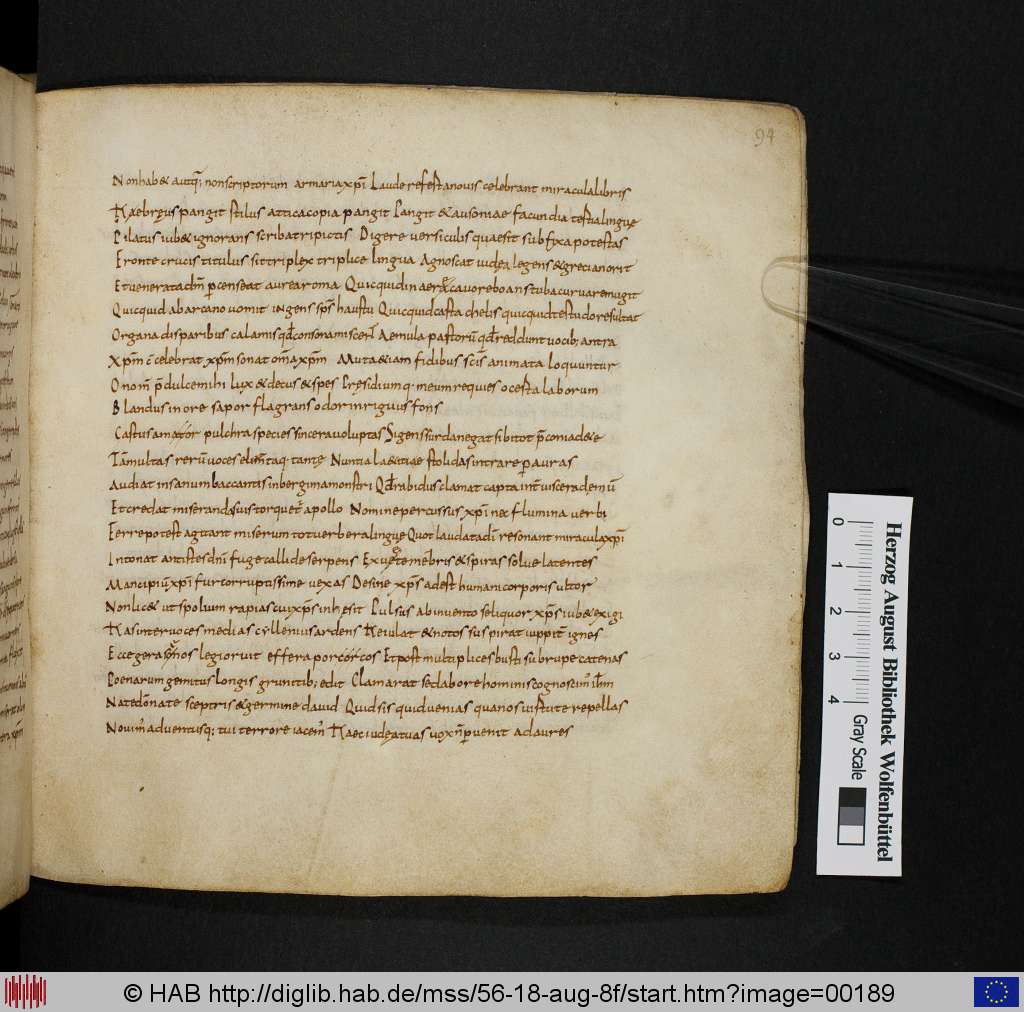 94
Non hab& autq; non scriptorum armaria xp̄i Laude refestanouis celebrant miracula libris
Haebręus pangit stilus attica copia pangit Pangit & ausoniae facundia testia linguę
Pilatus iub& ignorans scriba tripictis Digere versiculis quae sit subfixa potestas
Fronte crucis titulus sit triplex triplice lingua Agnoscat iudea legens & grecia norit
Et venerata dm̄ p censeat aurea roma Quicquid in aere cavo reboans tuba curva remugit
Quicquid ab arcano vomit ingens sps̄ haustu Quicquid casta chelis quicquid testudo resultat
Organa disparibus calamis qđ consona miscent Aemula pastorū qđ reddunt vocib; antra
Xp̄m celebrat xp̄m sonat om̄a xp̄m Muta & iam fidibus scīs animata loquuntur
O nom̄ p̄dulce mihi lux & decus & spes Presidiumq· meum requies o certa laborum
Blandus in ore sapor flagrans odor inriguus fons
Castus amor pulchra species sincera voluptas Si gens surda negat sibi tot p̄conia de te
Tam multas rerū voces elim̄taq· tantę Nuntia laetitiae stolidas intrare p auras
Audiat insanum baccantis inbergima monstri Qđ rabidus clamat capta int̄ viscera demū
Et credat miseranda suis torquet apollo Nomine percussus xp̄i nec flumina verbi
Ferre potest agitant miserum tot verbera linguę Quot laudata dī resonant miracula xp̄i
Intonat antistes dn̄i fuge callide serpens Exue te mēbris & spiras solve latentes
Mancipiū xp̄i fur corruptissime vexas Desine xps̄ adest humani corporis ultor
Non lic& ut spolium rapias cui xps̄ inhesit Pulsus abi invento se liquor xps̄ iub& exi
Has inter voces medias cyllenius ardens Heiulat & notos suspirat iuppit̄ ignes
Ecce gerasenos legio ruit effera porcos Et post multiplices busti sub rupe catenas
Poenarum gemitus longis grunitib; edit Clamarat sed ab ore hominis cognoscim' ihm̄
Nate do nate sceptris & germine david Quid sis quid venias qua nos virtute repellas
Novim' adventusq; tui terrore iacem' Haec iudea tuas vox n̄ pervenit ad aures
Herzog August Bibliothek Wolfenbüttel
0 1 2 3 4
Gray Scale
© HAB http://diglib.hab.de/mss/56-18-aug-8f/start.htm?image=00189